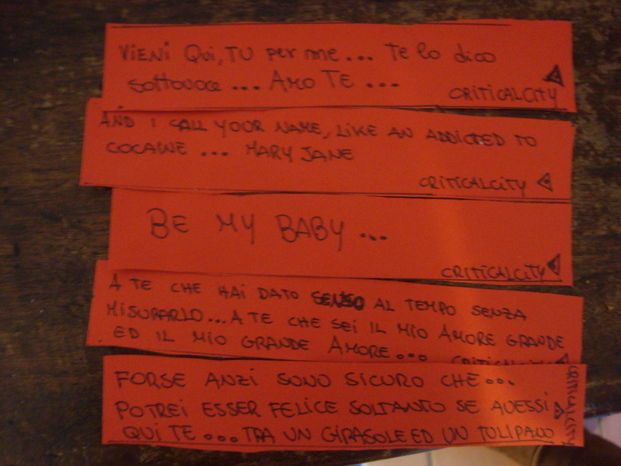 VIENI QUI, TU per me... Te lo dico
sottovoce... AMO TE...
CRITICALCITY
AND I CALL YOUR NAME, LIKE AN ADDICTED TO
COCAINE... MARY JANE
CRITICALCITY
BE MY BABY...
CRITICALCITY
A TE CHE HAI DATO SENSO AL TEMPO SENZA
MISURARLO... A TE CHE SEI IL MIO AMORE GRANDE
ED IL MIO GRANDE AMORE... CRITICALCITY
FORSE ANZI SONO SICURO CHE...
POTREI ESSER FELICE SOLTANTO SE AVESSI
QUI TE... TRA UN GIRASOLE ED UN TULIPANO
CRITICALCITY